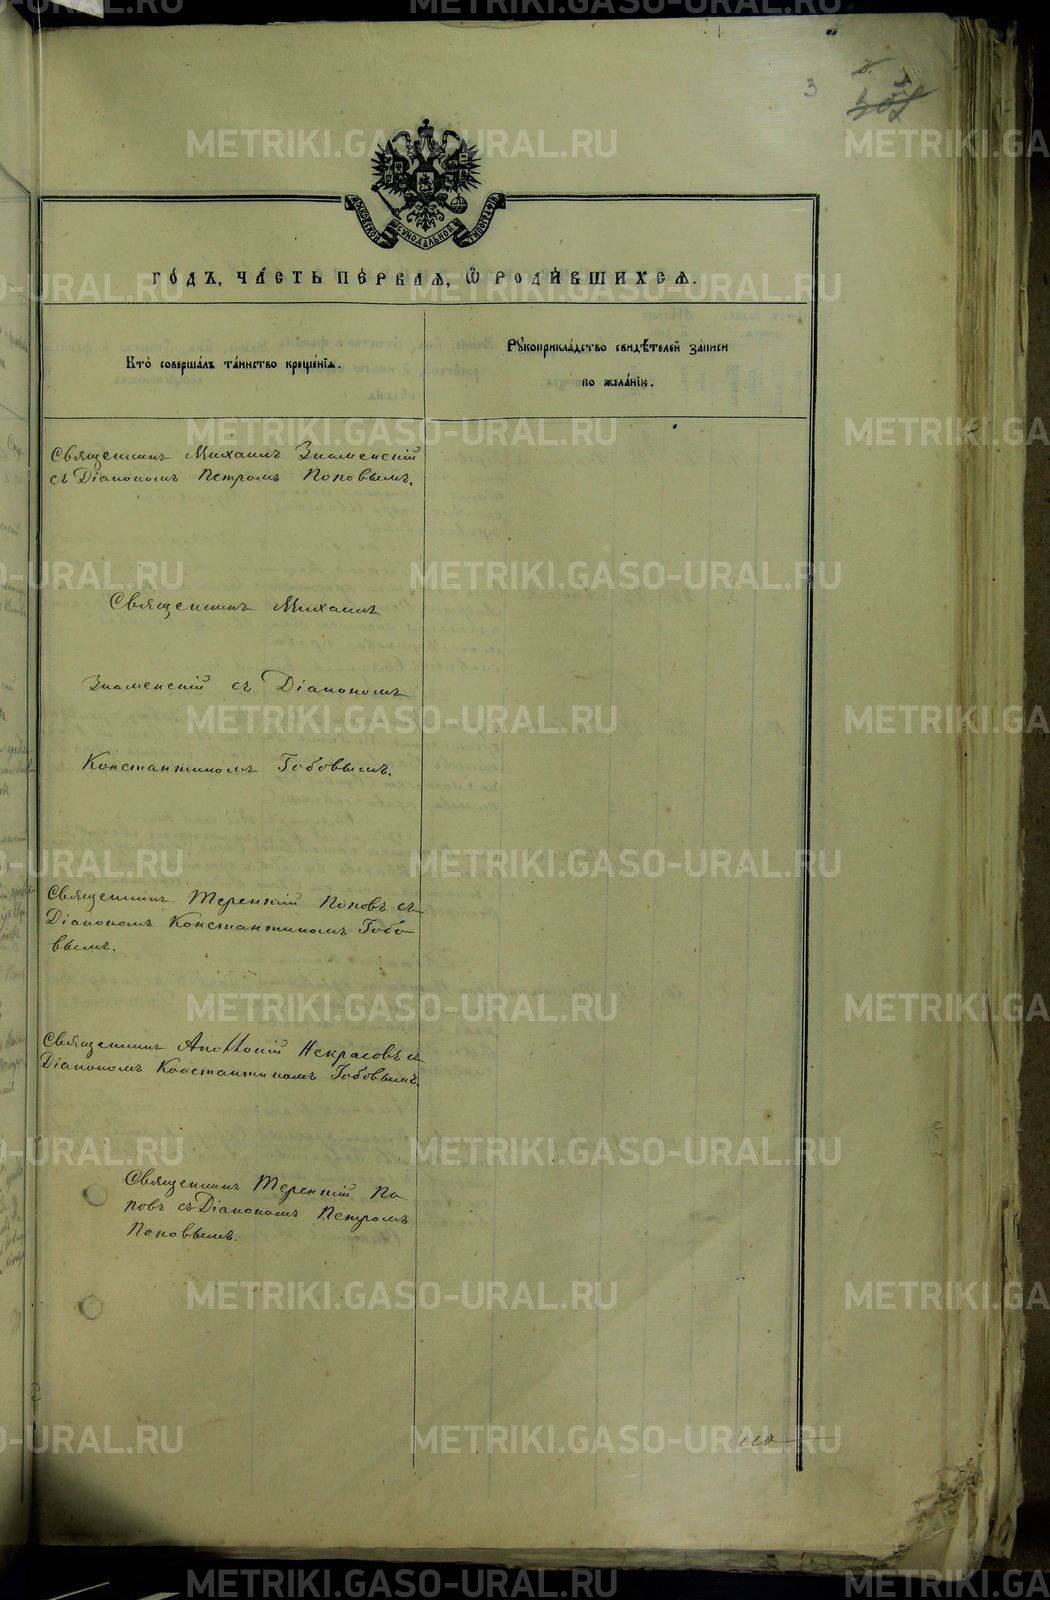 3
МОСКОВСКОЙ СѴНОДАЛЬНОЙ ТИПОГРАФІИ
ГО́ДЪ, ЧА́СТЬ ПЕ́РВАѦ, Ѡ҆ РОДИ́ВШИХСѦ.
Кто̀ соверша́лъ та́инство креще́нїѧ.
Рꙋкоприкла́дство свидѣ́телей за́писи
по жела́нїю.
Священникъ Михаилъ Знаменскій
съ Діакономъ Петромъ Поповымъ.
Священникъ Михаилъ
Знаменскій съ Діакономъ
Константиномъ Гобовымъ.
Священникъ Терентій Поповъ съ
Діакономъ Константиномъ Гобо
вымъ.
Священникъ Аполлоній Некрасовъ съ
Діакономъ Константиномъ Гобовымъ.
Священникъ Терентій По
повъ съ Діакономъ Петромъ
Поповымъ.
METRIKI.GASO-URAL.RU